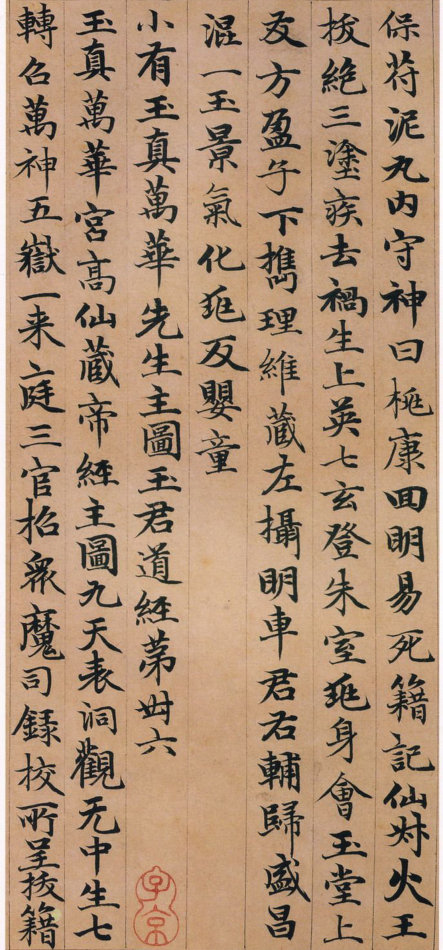 保苻泥丸内守神曰桃康回明易死籍記仙火王
拔絶三塗疾去禍生上英七玄登朱室兆身會玉堂上
友方盈子下攜理維藏左攝明車君右輔歸盛昌
混一玉景氣化兆反嬰童
小有玉真萬華先生主圖玉君道經第卅六
玉真萬華宮高仙藏帝經主圖九天表洞觀无中生七
轉召萬神五嶽一来庭三官招衆魔司錄校所呈拔籍
子京